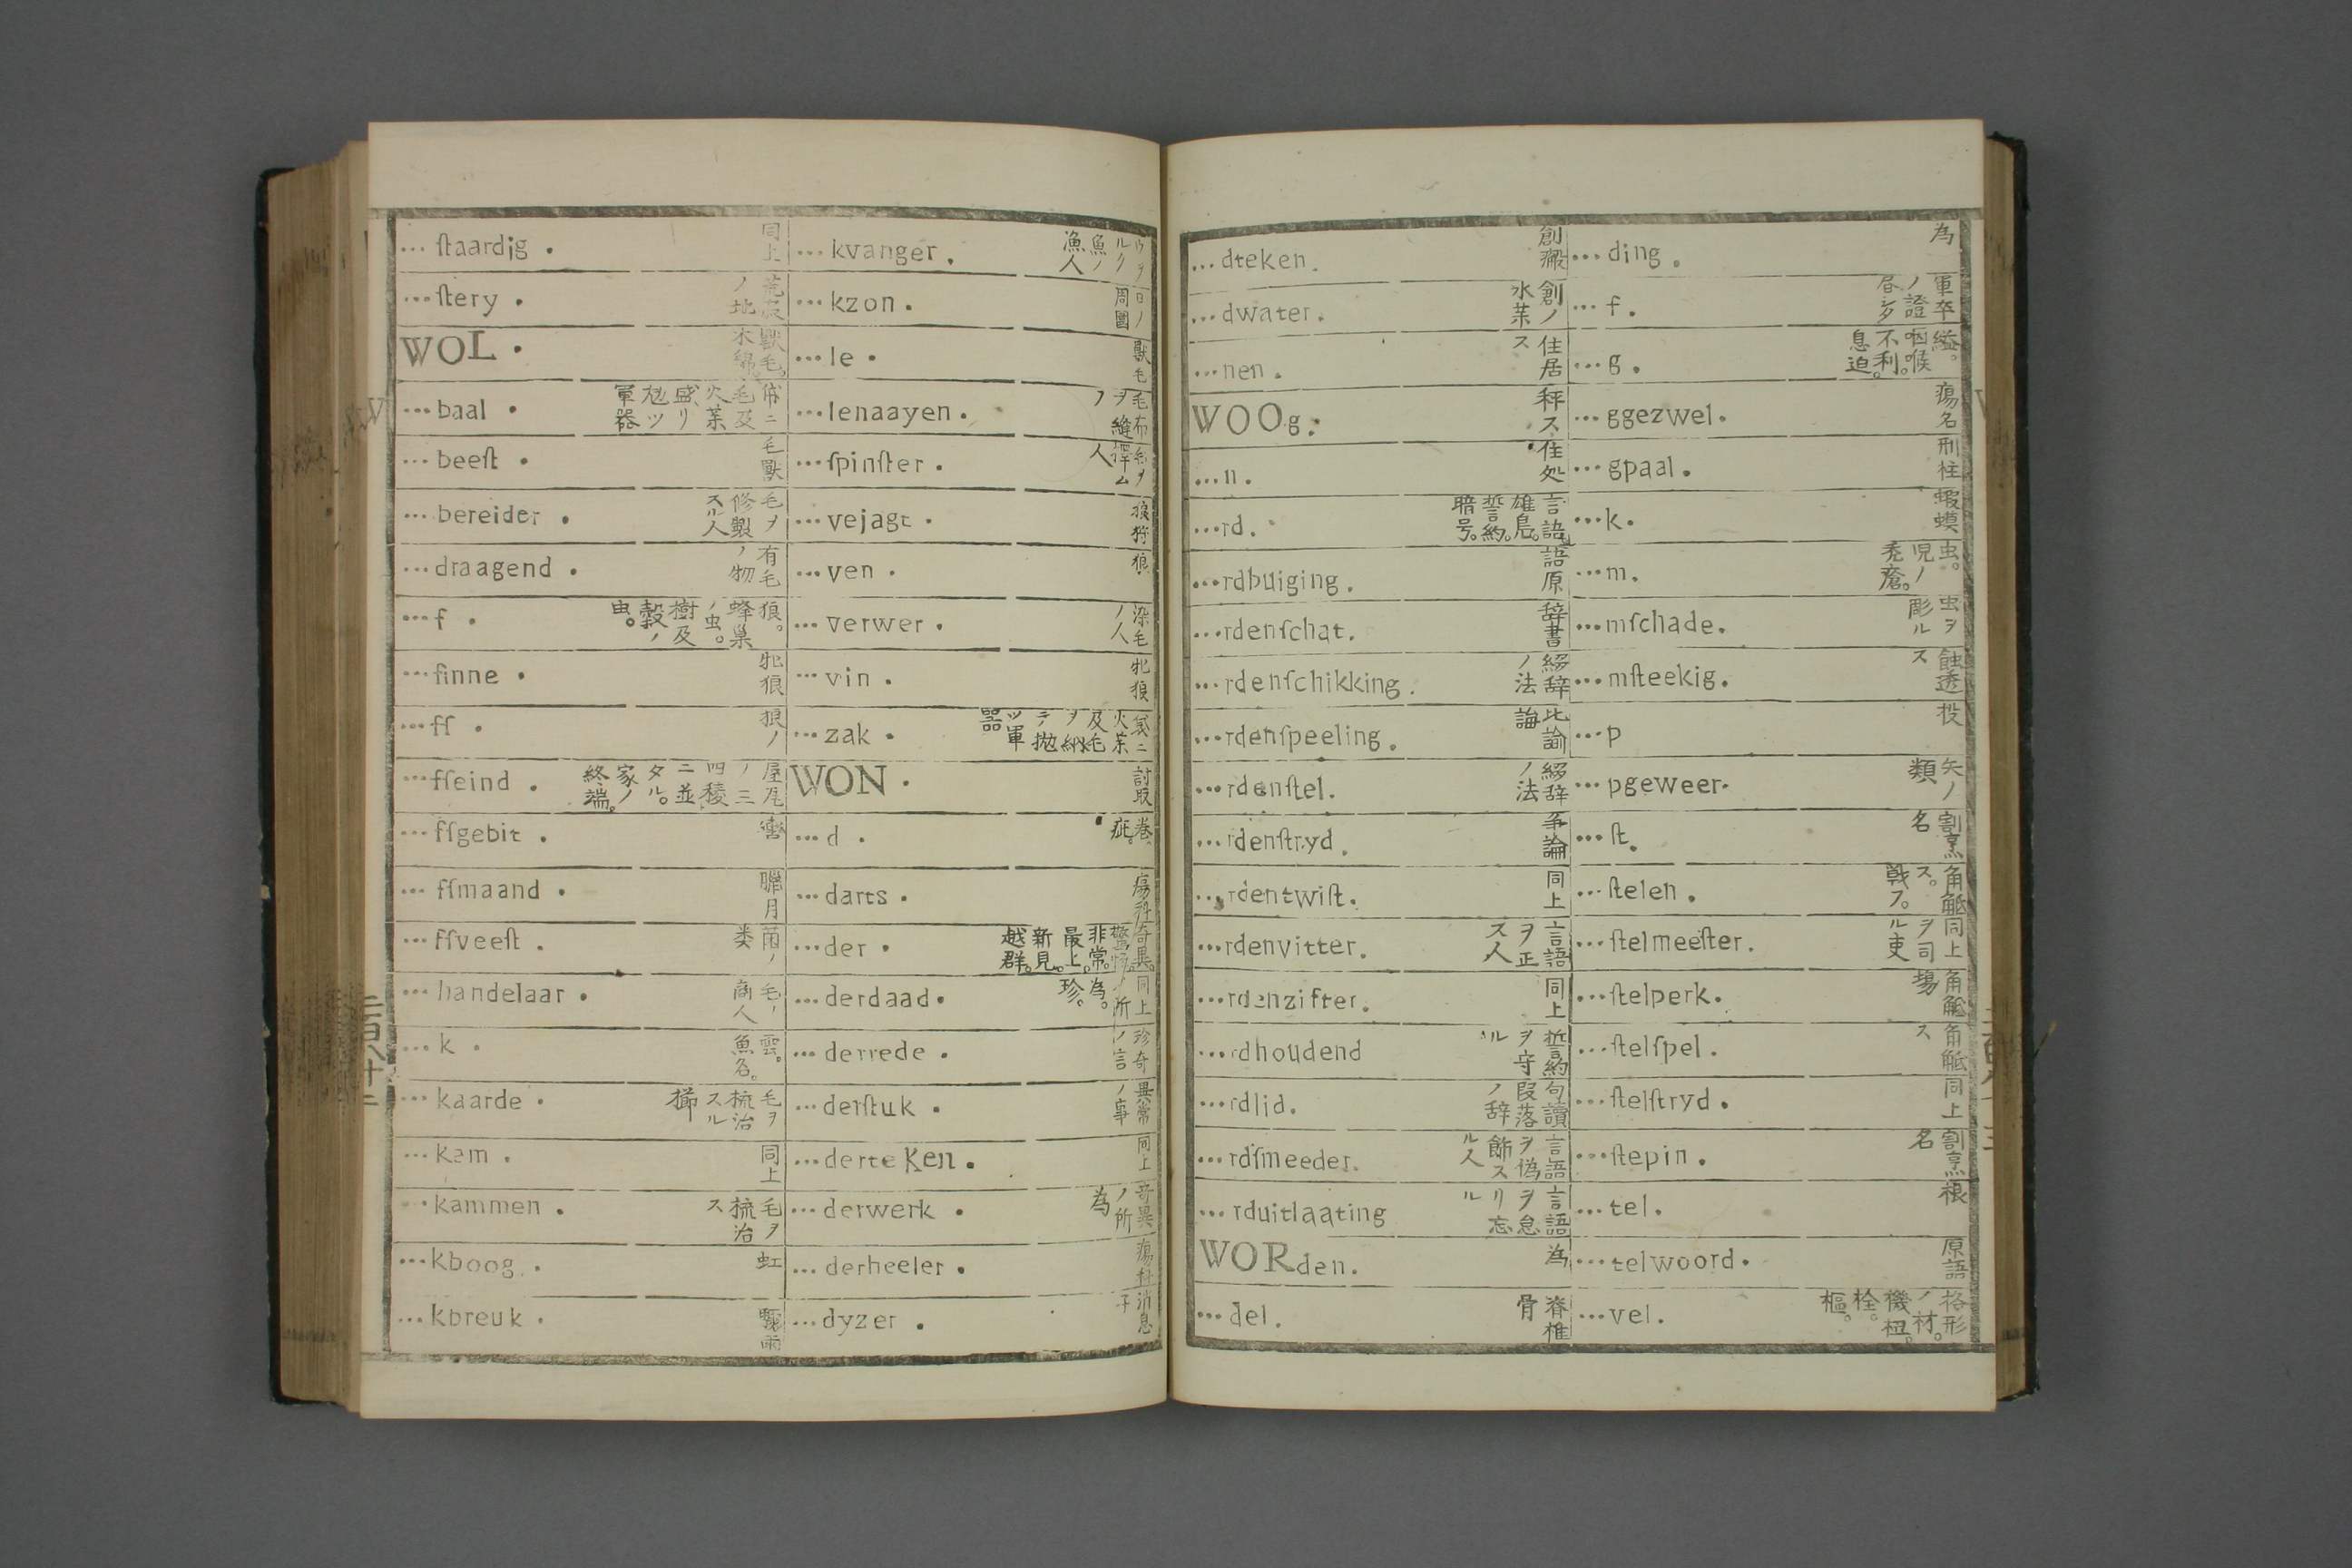 ... ſtaardig . 同上
... ſtery . 荒廃ノ地
WOL . 獣毛。木綿。
... baal . 毛及火薬盛リ軍器
... beeſt . 毛獣
... bereider . 毛ヲ修製スル人
... draagend . 有毛ノ物
... f . 狼。蜂巣ノ虫。樹及穀ノ虫。
... finne . 牝狼
... ff . 狼ノ
... fſeind . 屋尾ノ三四稜ニ並タル。家ノ終端。
... fſgebit . 轡
... fſmaand . 臘月
... fſveeſt . 菌ノ类
... handelaar . 毛ノ商人
... k . 雲。魚名。
... kaarde . 毛ヲ梳治スル櫛
... kam . 同上
... kammen . 毛ヲ梳治ス
... kboog . 虹
... kbreuk . 驟雨
... kvanger . 魚ノ漁人
... kzon . 日ノ周圍
... le . 獣毛
... lenaayen . 毛布ヲ縫フ
... ſpinſter . 毛ヲ人
... vejagt . 狼狩
... ven . 狼
... verwer . 染毛ノ人
... vin . 牝狼
... zak . 袋ニ火薬及毛ヲ納テ拋ツ軍器
WON . 討取
... d . 疵。
... darts . 瘍科
... der . 奇異。驚愕。非常。最上。新見。越群。
... derdaad . 同上ノ所為。珍。
... derrede . 珍奇ノ言
... derſtuk . 異常ノ事
... derteKen . 同上
... derwerk . 奇異ノ所為
... derheeler . 瘍科
... dyzer . 消息子
... dteken . 創瘢
... dwater . 創ノ水薬
... nen . 住居ス
WOOg . 秤ス
... n . 住処
... rd . 言語。雄鳬。誓約。暗号。
... rdbuiging . 語原
... rdenſchat . 辞書
... rdenſchikking . 綴辞ノ法
... rdenſpeeling . 比諭
... rdenſtel . 綴辞ノ法
... rdenſtryd . 争論
... rdentwiſt . 同上
... rdenvitter . 言語ヲ正ス人
... rdenzifter . 同上
... rdhoudend 誓約ヲ守ル
... rdlid . 句讀段落ノ辞
... rdſmeeder . 言語ヲ偽飾スル人
... rduitlaating 言語ヲ怠リ忘ル
WORden . 為
... del . 脊椎骨
... ding . 為
... f . 軍卒ノ證
... g . 縊。咽喉不利。息迫。
... ggezwel . 瘍名
... gpaal . 刑柱
... k . 蝦蟆
... m . 虫。児ノ禿瘡。
... mſchade . 虫ヲ彫ル
... mſteekig . 蝕透ス
... p 投
... pgeweer . 矢ノ類
... ſt . 割烹名
... ſtelen . 角觝ス。戦フ。
... ſtelmeeſter . 同上ヲ司ル吏
... ſtelperk . 角觝場
... ſtelſpel . 角觝ス
... ſtelſtryd . 同上
... ſtepin . 割烹名
... tel . 根
... telwoord . 原語
... vel . 格形ノ材。機杻。栓。樞。